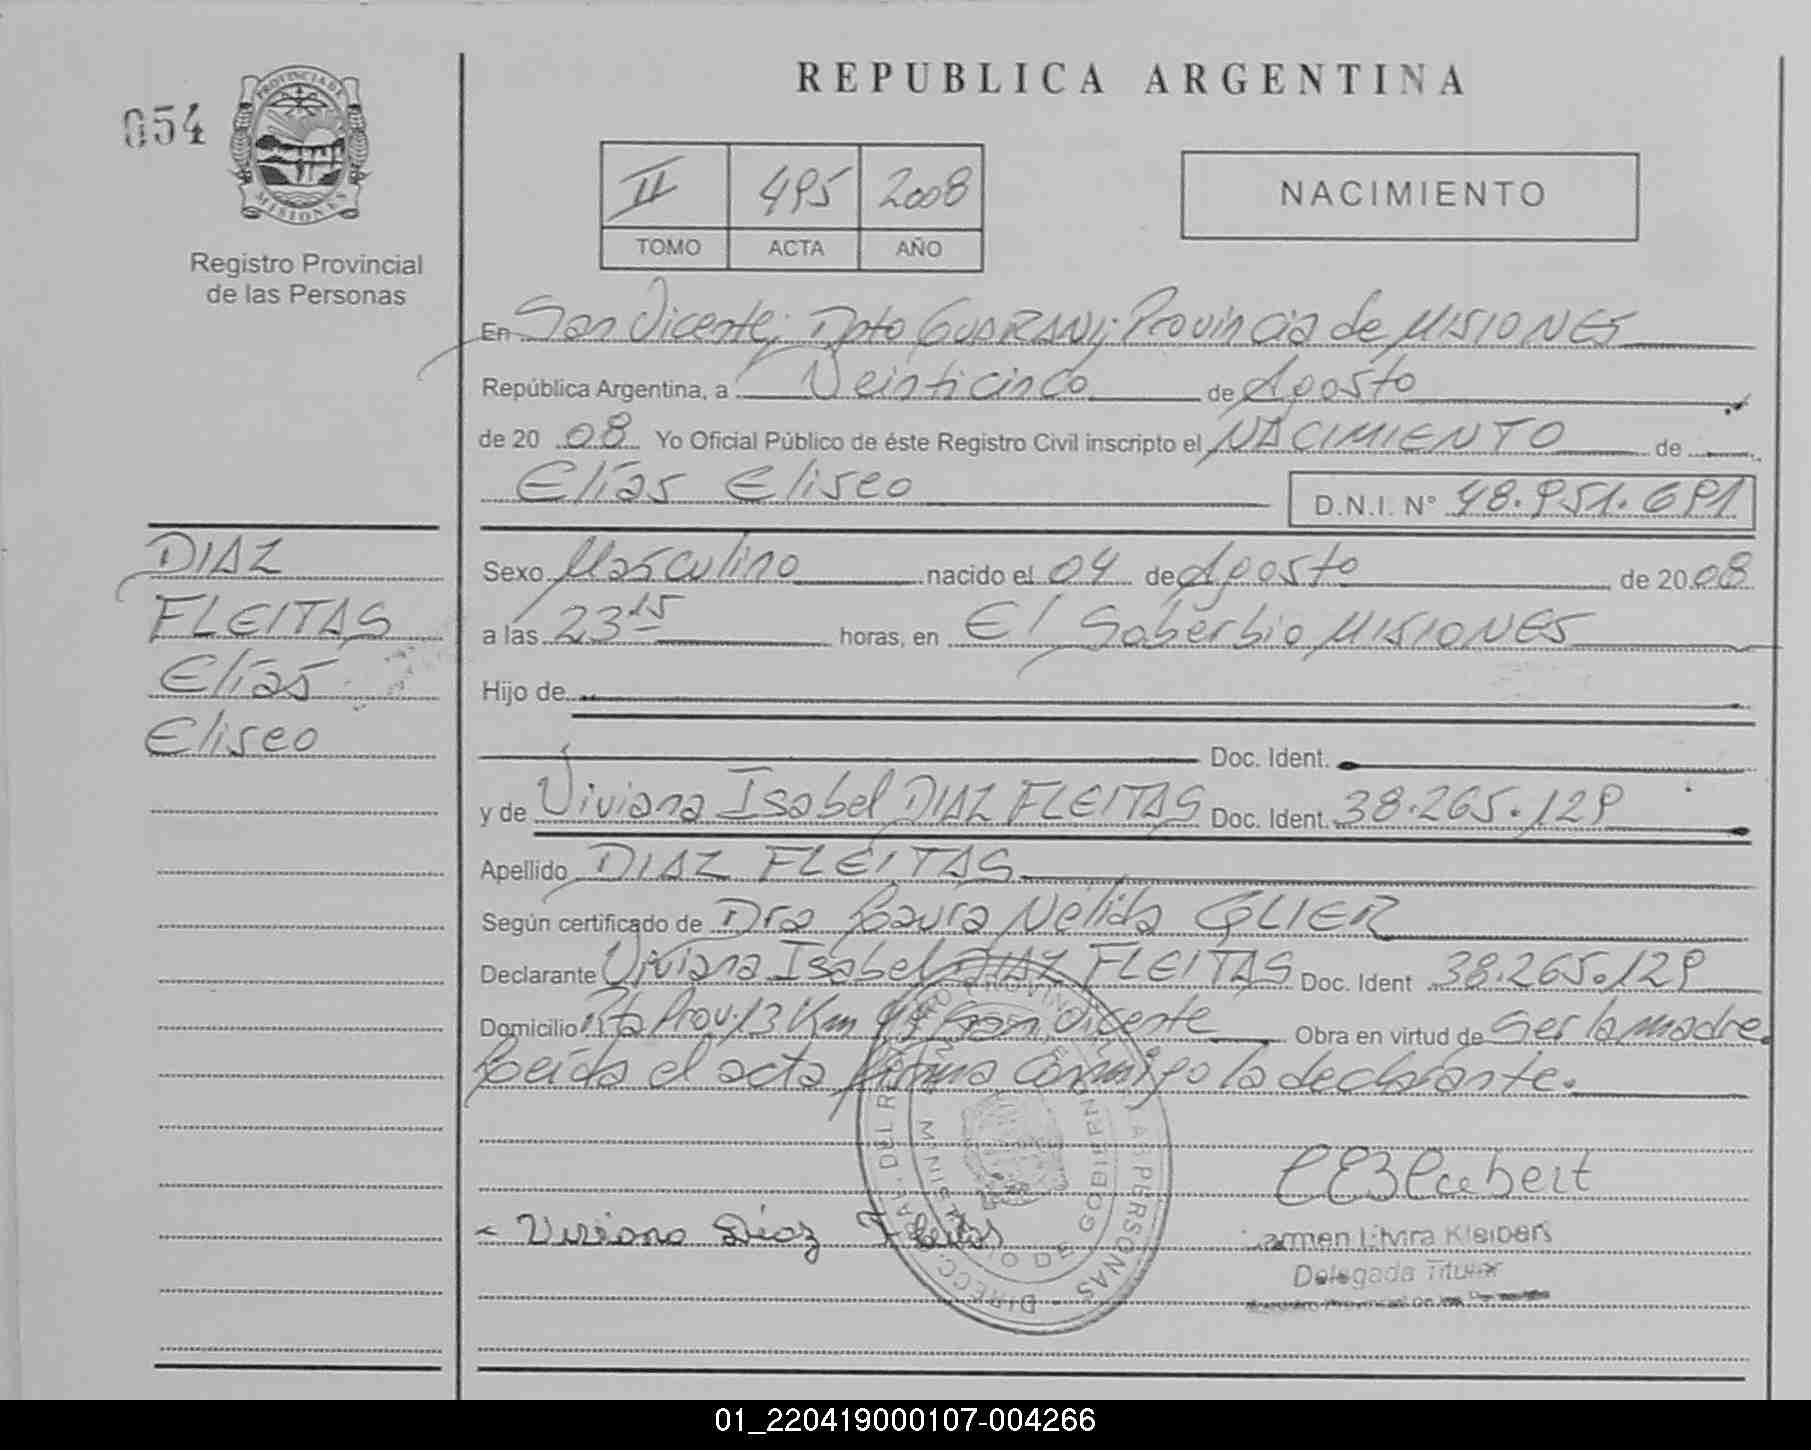 REPUBLICA ARGENTINA
054
PROVINCIA DE
MISIONES
Registro Provincial
de las Personas
II 495 2008
TOMO ACTA AÑO
NACIMIENTO
En San Vicente; Dpto GUARANI; Provincia de MISIONES
República Argentina, a Veinticinco de Agosto
de 20 08 Yo Oficial Público de éste Registro Civil inscripto el NACIMIENTO de
Elías Eliseo D.N.I. Nº 48.951.691
DIAZ
FLEITAS
Elías
Eliseo
Sexo Masculino nacido el 04 de Agosto de 20 08
a las 23 15 horas, en El Soberbio MISIONES
Hijo de
Doc. Ident.
y de Viviana Isabel DIAZ FLEITAS Doc. Ident. 38.265.129
Apellido DIAZ FLEITAS
Según certificado de Dra Laura Nélida GLIER
Declarante Viviana Isabel DIAZ FLEITAS Doc. Ident 38.265.129
Domicilio Rta Prov. 13 Km San Vicente Obra en virtud de Ser la madre.
Leída el acta firma conmigo la declarante.
Viviana Díaz Fleitas
Delegada Titular
01_220419000107-004266